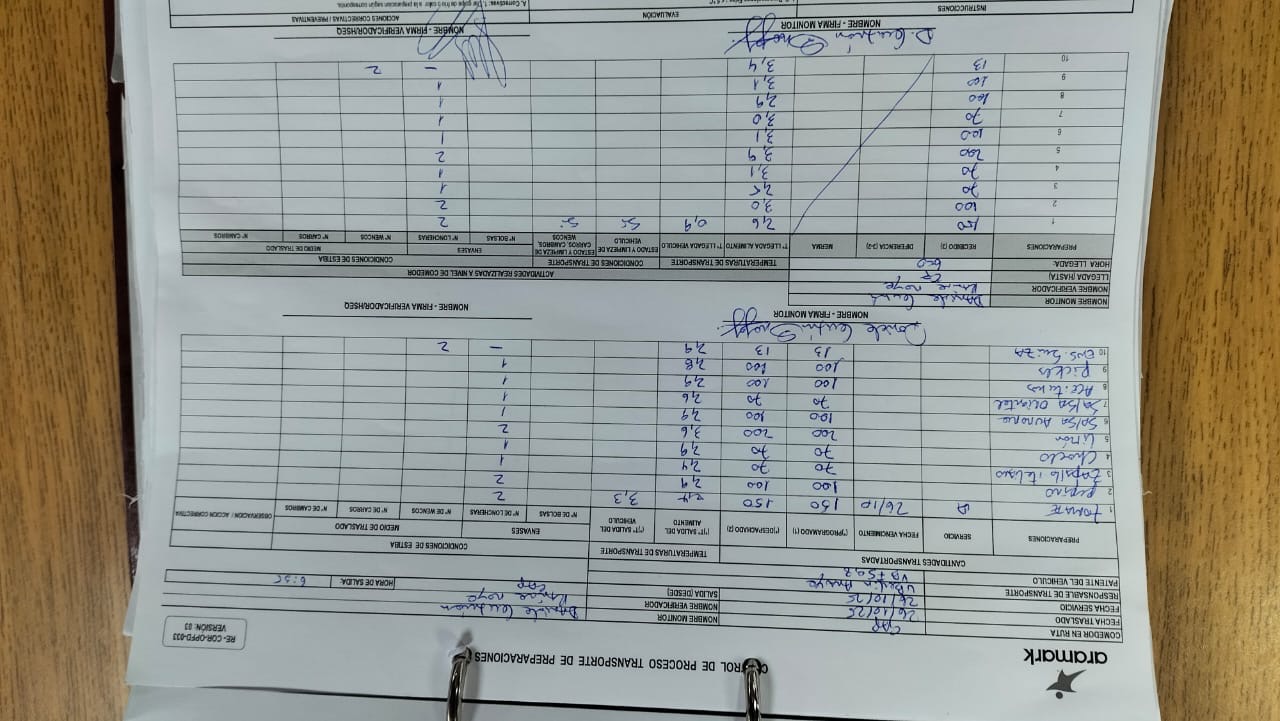 aramark
CONTROL DE PROCESO TRANSPORTE DE PREPARACIONES
RE- COR-OPFD-033
VERSIÓN: 03
COMEDOR EN RUTA
FECHA TRASLADO 26/10/25
FECHA SERVICIO 26/10/25
RESPONSABLE DE TRANSPORTE
PATENTE DEL VEHICULO
NOMBRE MONITOR Daniele
NOMBRE VERIFICADOR
SALIDA (DESDE) HORA DE SALIDA:
CANTIDADES TRANSPORTADAS TEMPERATURAS DE TRANSPORTE CONDICIONES DE ESTIBA
ENVASES MEDIO DE TRASLADO
PREPARACIONES SERVICIO FECHA VENCIMIENTO (*)PROGRAMADO (1) (*)DESPACHADO (2) (*)T° SALIDA DEL ALIMENTO (*)T° SALIDA DEL VEHICULO N° DE BOLSAS N° DE LONCHERAS N° DE WENCOS N° DE CARROS N° DE CAMBROS OBSERVACIÓN / ACCIÓN CORRECTIVA
1 TOMATE A 26/10 150 150 3,3 2
2 Pepino 100 100 2,9 2
3 Zapallo italiano 70 70 2,4 1
4 Choclo 70 70 2,9 1
5 Limón 200 200 3,6 2
6 Salsa 100 100 2,9 1
7 Salsa Oriental 70 70 2,6 1
8 Aceitunas 100 100 2,9 1
9 Pickles 100 100 2,8 1
10 13 13 2,9 — 2
NOMBRE - FIRMA MONITOR
NOMBRE - FIRMA VERIFICADOR/HSEQ
NOMBRE MONITOR Daniele
NOMBRE VERIFICADOR
LLEGADA (HASTA)
HORA LLEGADA
ACTIVIDADES REALIZADAS A NIVEL DE COMEDOR
TEMPERATURAS DE TRANSPORTE CONDICIONES DE TRANSPORTE CONDICIONES DE ESTIBA
ENVASES MEDIO DE TRASLADO
PREPARACIONES RECIBIDO (3) DIFERENCIA (3-2) MERMA T° LLEGADA ALIMENTO T° LLEGADA VEHICULO ESTADO Y LIMPIEZA DE VEHICULO ESTADO Y LIMPIEZA DE CARROS, CAMBROS, WENCOS N° BOLSAS N° LONCHERAS N° WENCOS N° CARROS N° CAMBROS
1 150 2,6 0,9 Si Si 2
2 100 3,0 2
3 70 2,5 1
4 70 3,1 1
5 200 3,9 2
6 100 3,1 1
7 70 3,0 1
8 100 2,9 1
9 100 3,1 1
10 13 3,4 — 2
NOMBRE - FIRMA MONITOR
NOMBRE - FIRMA VERIFICADOR/HSEQ
INSTRUCCIONES EVALUACIÓN ACCIONES CORRECTIVAS / PREVENTIVAS